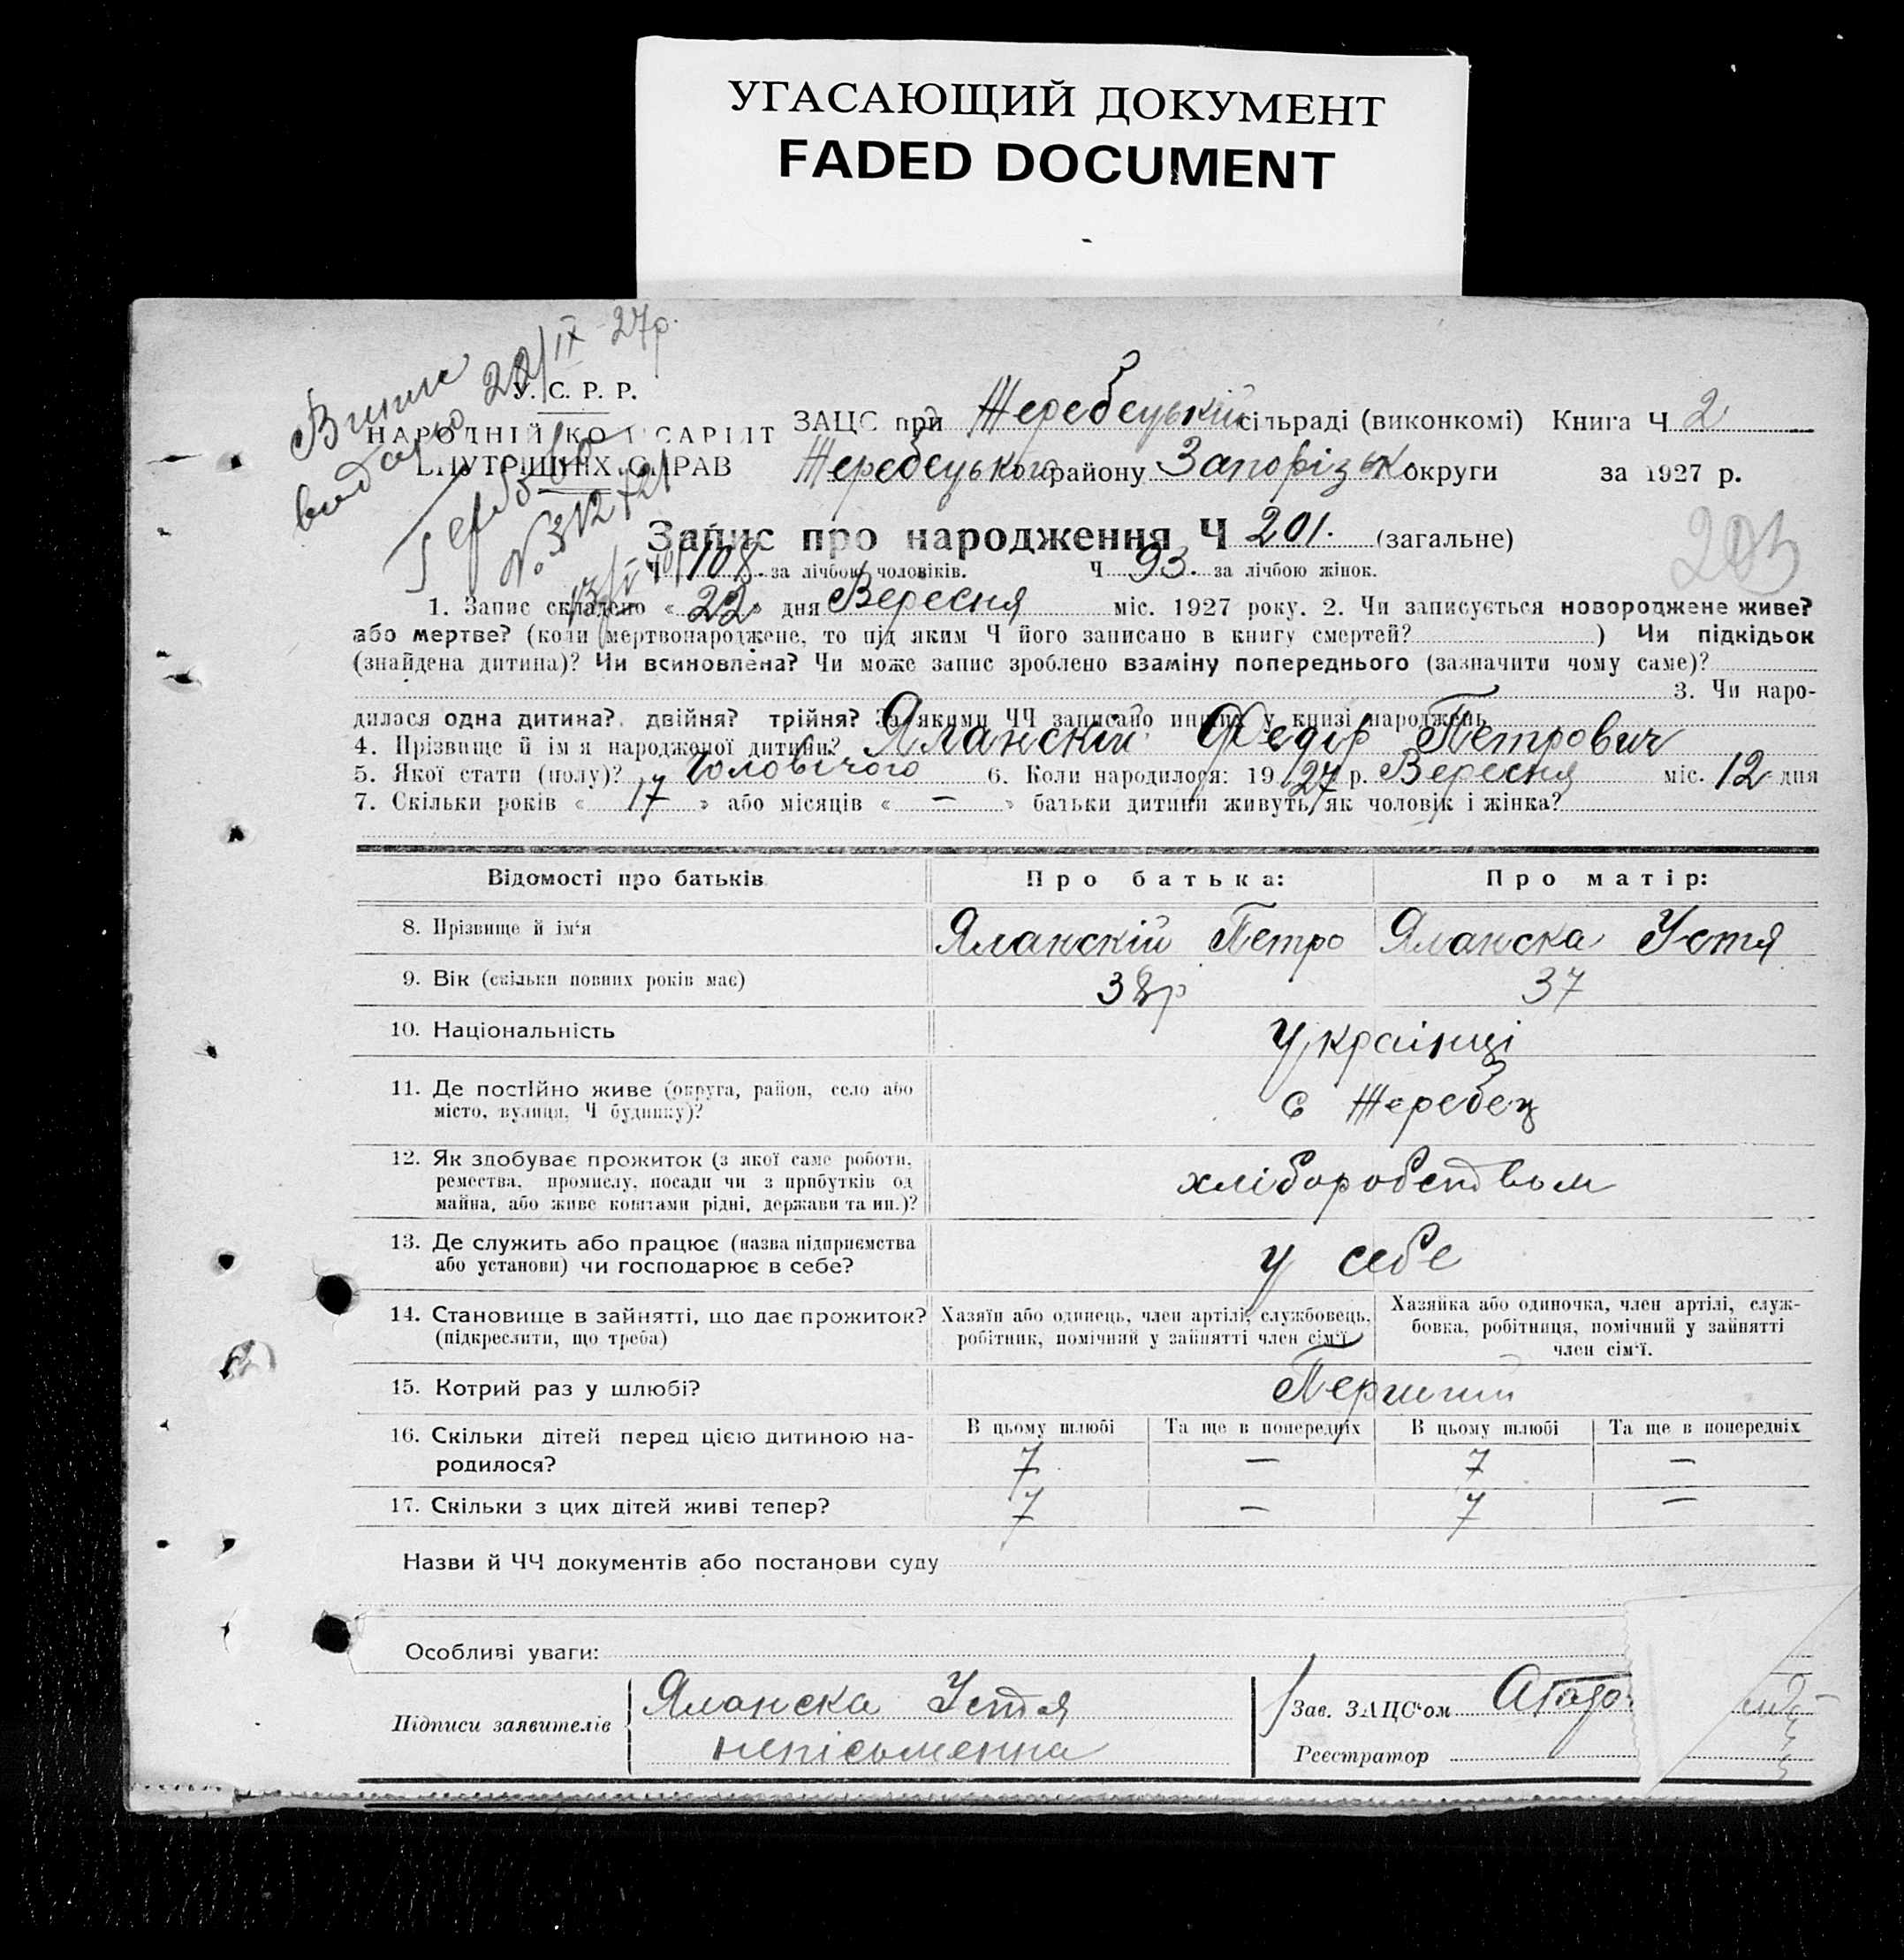 УГАСАЮЩИЙ ДОКУМЕНТ
FADED DOCUMENT
Випис видано 22/IX 27р.
У. С. Р. Р.
НАРОДНІЙ КОМІСАРІЯТ
ВНУТРІШНІХ СПРАВ
ЗАЦС при Жеребецькій сільраді (виконкомі) Книга Ч 2
Жеребецького району Запорізьк округи за 1927 р.
Запис про народження Ч 201. (загальне)
203
Ч 108. за лічбою чоловіків. Ч 93. за лічбою жінок.
1. Запис складено « 22 » дня Вересня міс. 1927 року. 2. Чи записується новороджене живе?
або мертве? (коли мертвонароджене, то під яким Ч його записано в книгу смертей? ) Чи підкідьок
(знайдена дитина)? Чи всиновлена? Чи може запис зроблено взаміну попереднього (зазначити чому саме)?
3. Чи наро-
дилася одна дитина? двійня? трійня? За якими ЧЧ записано инших у книзі народжень
4. Прізвище й ім я народженої дитини? Яланскій Федір Петрович
5. Якої стати (полу)? Чоловічого 6. Коли народилося: 1927 р. Вересня міс. 12 дня
7. Скільки років « 17 » або місяців « — » батьки дитини живуть як чоловік і жінка?
Відомості про батьків Про батька: Про матір:
8. Прізвище й ім'я Яланскій Петро Яланска Устя
9. Вік (скільки повних років має) 38р 37
10. Національність Українці
11. Де постійно живе (округа, район, село або
місто, вулиця, Ч будинку)? с Жеребец
12. Як здобуває прожиток (з якої саме роботи,
ремества, промислу, посади чи з прибутків од
майна, або живе коштами рідні, держави та ин.)? хліборобством
13. Де служить або працює (назва підприємства
або установи) чи господарює в себе? у себе
14. Становище в зайнятті, що дає прожиток?
(підкреслити, що треба)
Хазяїн або одинець, член артілі, службовець,
робітник, помічний у зайнятті член сім'ї
Хазяйка або одиночка, член артілі, служ-
бовка, робітниця, помічний у зайнятті
член сім'ї.
15. Котрий раз у шлюбі? Перший
В цьому шлюбі Та ще в попередніх В цьому шлюбі Та ще в попередніх
16. Скільки дітей перед цією дитиною на-
родилося? 7 — 7 —
17. Скільки з цих дітей живі тепер? 7 — 7 —
Назви й ЧЧ документів або постанови суду
Особливі уваги:
Підписи заявителів Яланска Устя
непісьменна
Зав. ЗАЦС'ом
Реєстратор